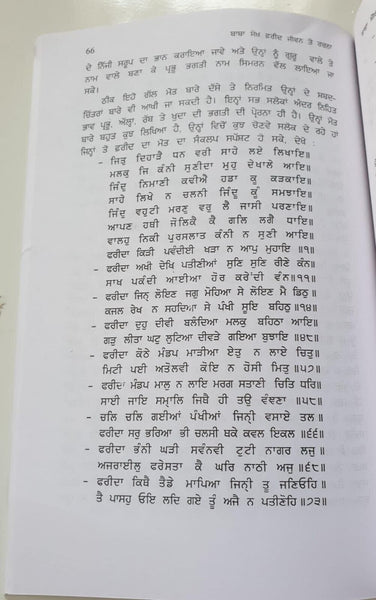 66
ਬਾਬਾ ਸੇਖ਼ ਫ਼ਰੀਦ ਜੀਵਨ ਤੇ ਰਚਨਾ
ਦੇ ਨਿੱਜੀ ਸਰੂਪ ਦਾ ਭਾਨ ਕਰਾਇਆ ਜਾਵੇ ਅਤੇ ਉਨ੍ਹਾਂ ਨੂੰ ਗੁਰੂ ਵਾਲੇ ਤੇ
ਨਾਮ ਵਾਲੇ ਬਣਾ ਕੇ ਪ੍ਰਭੂ ਭਗਤੀ ਨਾਮ ਸਿਮਰਨ ਵੱਲ ਲਾਇਆ ਜਾ
ਸਕੇ।
ਠੀਕ ਇਹੋ ਗੱਲ ਮੌਤ ਬਾਰੇ ਦੱਸੇ ਤੇ ਨਿਰਮਿਤ ਉਨ੍ਹਾਂ ਦੇ ਸ਼ਬਦ-
ਚਿੱਤਰਾਂ ਬਾਰੇ ਵੀ ਆਖੀ ਜਾ ਸਕਦੀ ਹੈ। ਇਨ੍ਹਾਂ ਸਭ ਸਲੋਕਾਂ ਅੰਦਰ ਨਿਹਿਤ
ਭਾਵ ਪ੍ਰਭੂ, ਅੱਲ੍ਹਾ, ਰੱਬ ਤੇ ਖ਼ੁਦਾ ਦੀ ਭਗਤੀ ਦੀ ਪ੍ਰੇਰਨਾ ਹੀ ਹੈ। ਉਨ੍ਹਾਂ ਮੌਤ
ਬਾਰੇ ਬਹੁਤ ਕੁਝ ਲਿਖਿਆ ਹੈ, ਉਨ੍ਹਾਂ ਵਿਚੋਂ ਕੁਝ ਚੋਣਵੇਂ ਸਲੋਕ ਦੇ ਰਹੇ ਹਾਂ
ਜਿਨ੍ਹਾਂ ਤੇ ਫ਼ਰੀਦ ਦਾ ਮੌਤ ਦਾ ਸੰਕਲਪ ਸਪੱਸ਼ਟ ਹੋ ਸਕੇ, ਦੇਖੋ :
- ਜਿਤੁ ਦਿਹਾੜੈ ਧਨ ਵਰੀ ਸਾਹੇ ਲਏ ਲਿਖਾਇ॥
ਮਲਕੁ ਜਿ ਕੰਨੀ ਸੁਣੀਦਾ ਮੁਹੁ ਦੇਖਾਲੇ ਆਇ॥
ਜਿੰਦੁ ਨਿਮਾਣੀ ਕਢੀਐ ਹਡਾ ਕੂ ਕੜਕਾਇ॥
ਸਾਹੇ ਲਿਖੇ ਨ ਚਲਨੀ ਜਿੰਦੂ ਕੂੰ ਸਮਝਾਇ॥
ਜਿੰਦੁ ਵਹੁਟੀ ਮਰਣੁ ਵਰੁ ਲੈ ਜਾਸੀ ਪਰਣਾਇ॥
ਆਪਣ ਹਥੀ ਜੋਲਿਕੈ ਕੈ ਗਲਿ ਲਗੈ ਧਾਇ॥
ਵਾਲਹੁ ਨਿਕੀ ਪੁਰਸਲਾਤ ਕੰਨੀ ਨ ਸੁਣੀ ਆਇ॥
ਫਰੀਦਾ ਕਿੜੀ ਪਵੰਦੀਈ ਖੜਾ ਨ ਆਪੁ ਮੁਹਾਇ ॥੧॥
- ਫਰੀਦਾ ਅਖੀ ਦੇਖਿ ਪਤੀਣੀਆਂ ਸੁਣਿ ਸੁਣਿ ਰੀਣੇ ਕੰਨ॥
ਸਾਖ ਪਕੰਦੀ ਆਈਆ ਹੋਰ ਕਰੇਂਦੀ ਵੰਨ॥੧੧॥
- ਫਰੀਦਾ ਜਿਨ੍ ਲੋਇਣ ਜਗੁ ਮੋਹਿਆ ਸੇ ਲੋਇਣ ਮੈ ਡਿਠੁ॥
ਕਜਲ ਰੇਖ ਨ ਸਹਦਿਆ ਸੇ ਪੰਖੀ ਸੂਇ ਬਹਿਠੁ॥੧੪॥
- ਫਰੀਦਾ ਦੁਹੁ ਦੀਵੀ ਬਲੰਦਿਆ ਮਲਕੁ ਬਹਿਠਾ ਆਇ॥
ਗੜੁ ਲੀਤਾ ਘਟੁ ਲੁਟਿਆ ਦੀਵੜੇ ਗਇਆ ਬੁਝਾਇ॥੪੮॥
- ਫਰੀਦਾ ਕੋਠੇ ਮੰਡਪ ਮਾੜੀਆ ਏਤੁ ਨ ਲਾਏ ਚਿਤੁ॥
ਮਿਟੀ ਪਈ ਅਤੋਲਵੀ ਕੋਇ ਨ ਹੋਸੀ ਮਿਤੁ॥੫੭॥
- ਫਰੀਦਾ ਮੰਡਪ ਮਾਲੁ ਨ ਲਾਇ ਮਰਗ ਸਤਾਣੀ ਚਿਤਿ ਧਰਿ॥
ਸਾਈ ਜਾਇ ਸਮ੍ਹਾਲਿ ਜਿਥੈ ਹੀ ਤਉ ਵੰਞਣਾ ॥੫੮॥
- ਚਲਿ ਚਲਿ ਗਈਆਂ ਪੰਖੀਆਂ ਜਿਨ੍ਹੀ ਵਸਾਏ ਤਲ॥
ਫਰੀਦਾ ਸਰੁ ਭਰਿਆ ਭੀ ਚਲਸੀ ਥਕੇ ਕਵਲ ਇਕਲ॥੬੬॥
- ਫਰੀਦਾ ਭੰਨੀ ਘੜੀ ਸਵੰਨਵੀ ਟੁਟੀ ਨਾਗਰ ਲਜੁ॥
ਅਜਰਾਈਲੁ ਫਰੇਸਤਾ ਕੈ ਘਰਿ ਨਾਠੀ ਅਜੁ॥੬੮॥
- ਫਰੀਦਾ ਕਿਥੈ ਤੈਡੇ ਮਾਪਿਆ ਜਿਨ੍ਹੀ ਤੂ ਜਣਿਓਹਿ॥
ਤੈ ਪਾਸਹੁ ਓਇ ਲਦਿ ਗਏ ਤੂੰ ਅਜੈ ਨ ਪਤੀਣੋਹਿ॥੭੩॥